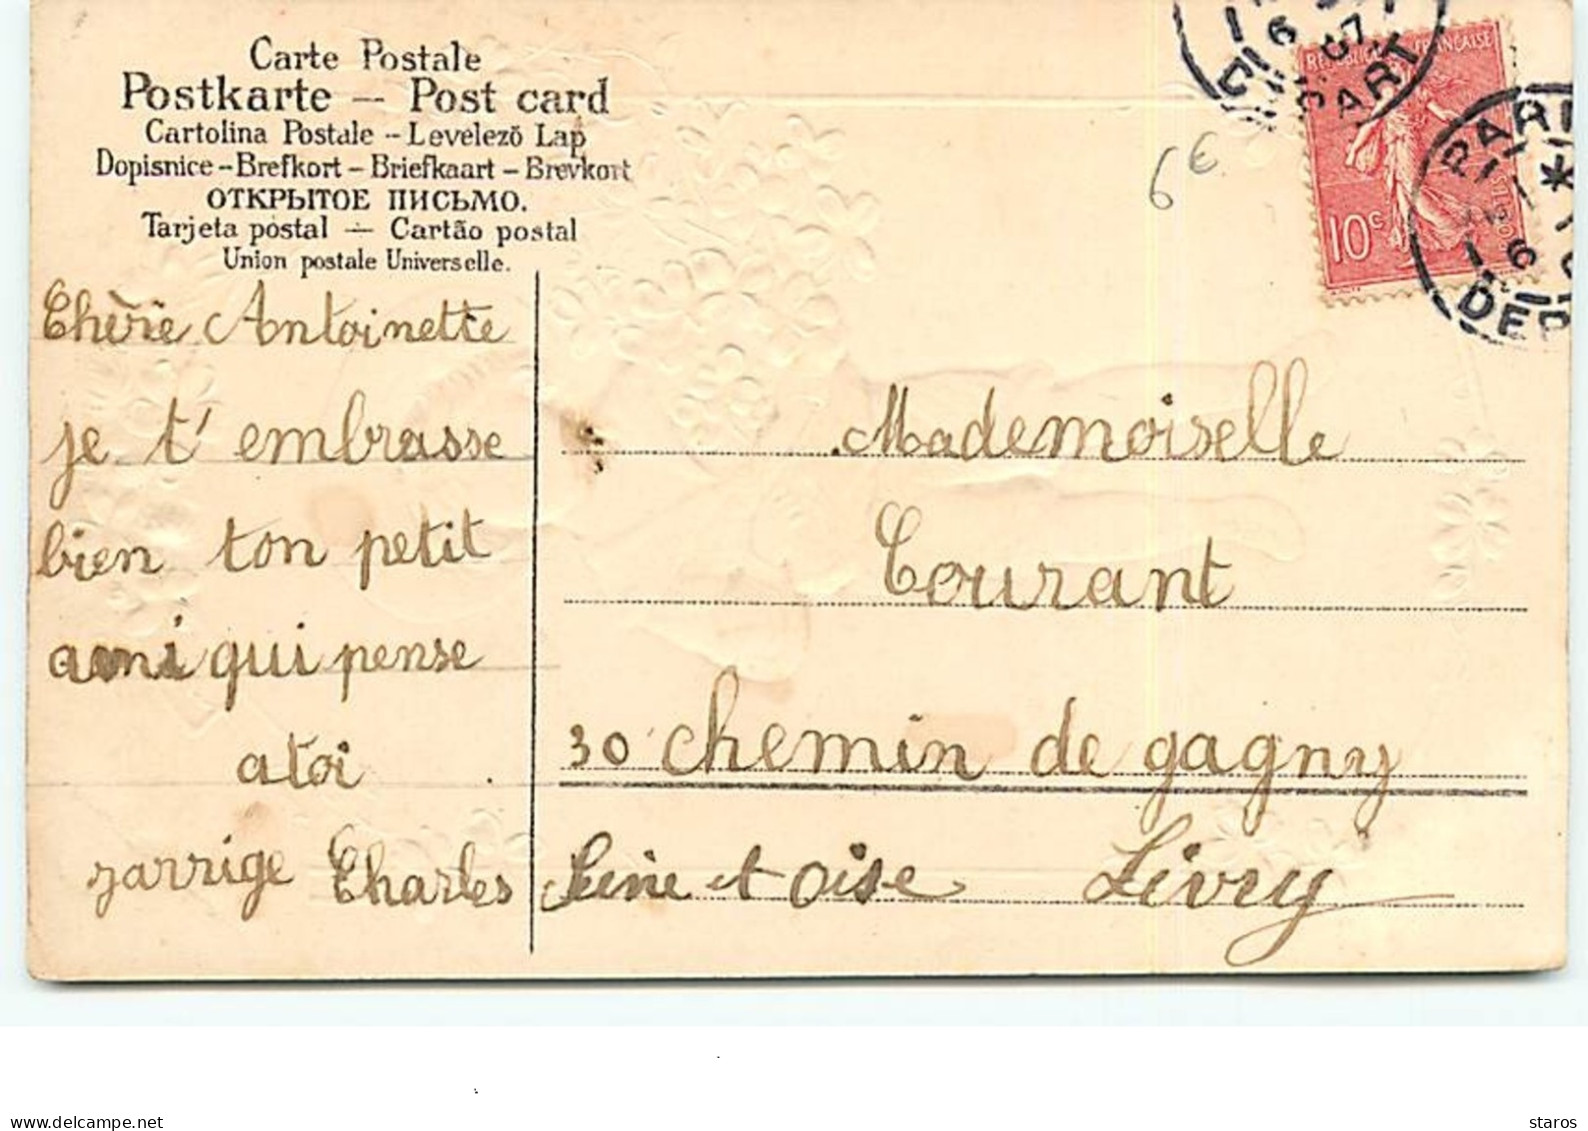 Carte Postale
Postkarte — Post card
Cartolina Postale - Levelező Lap
Dopisnice - Brefkort - Briefkaart - Brevkort
ОТКРЫТОЕ ПИСЬМО.
Tarjeta postal — Cartão postal
Union postale Universelle.
6€
REPUBLIQUE FRANÇAISE
10c
07
DEPART
PARI
6
DEP
Chèrie Antoinette
je t'embrasse
bien ton petit
ami qui pense
atoi
Jarrige Charles
Mademoiselle
Courant
30 chemin de gagny
Seine et oise Livry
www.delcampe.net
staros